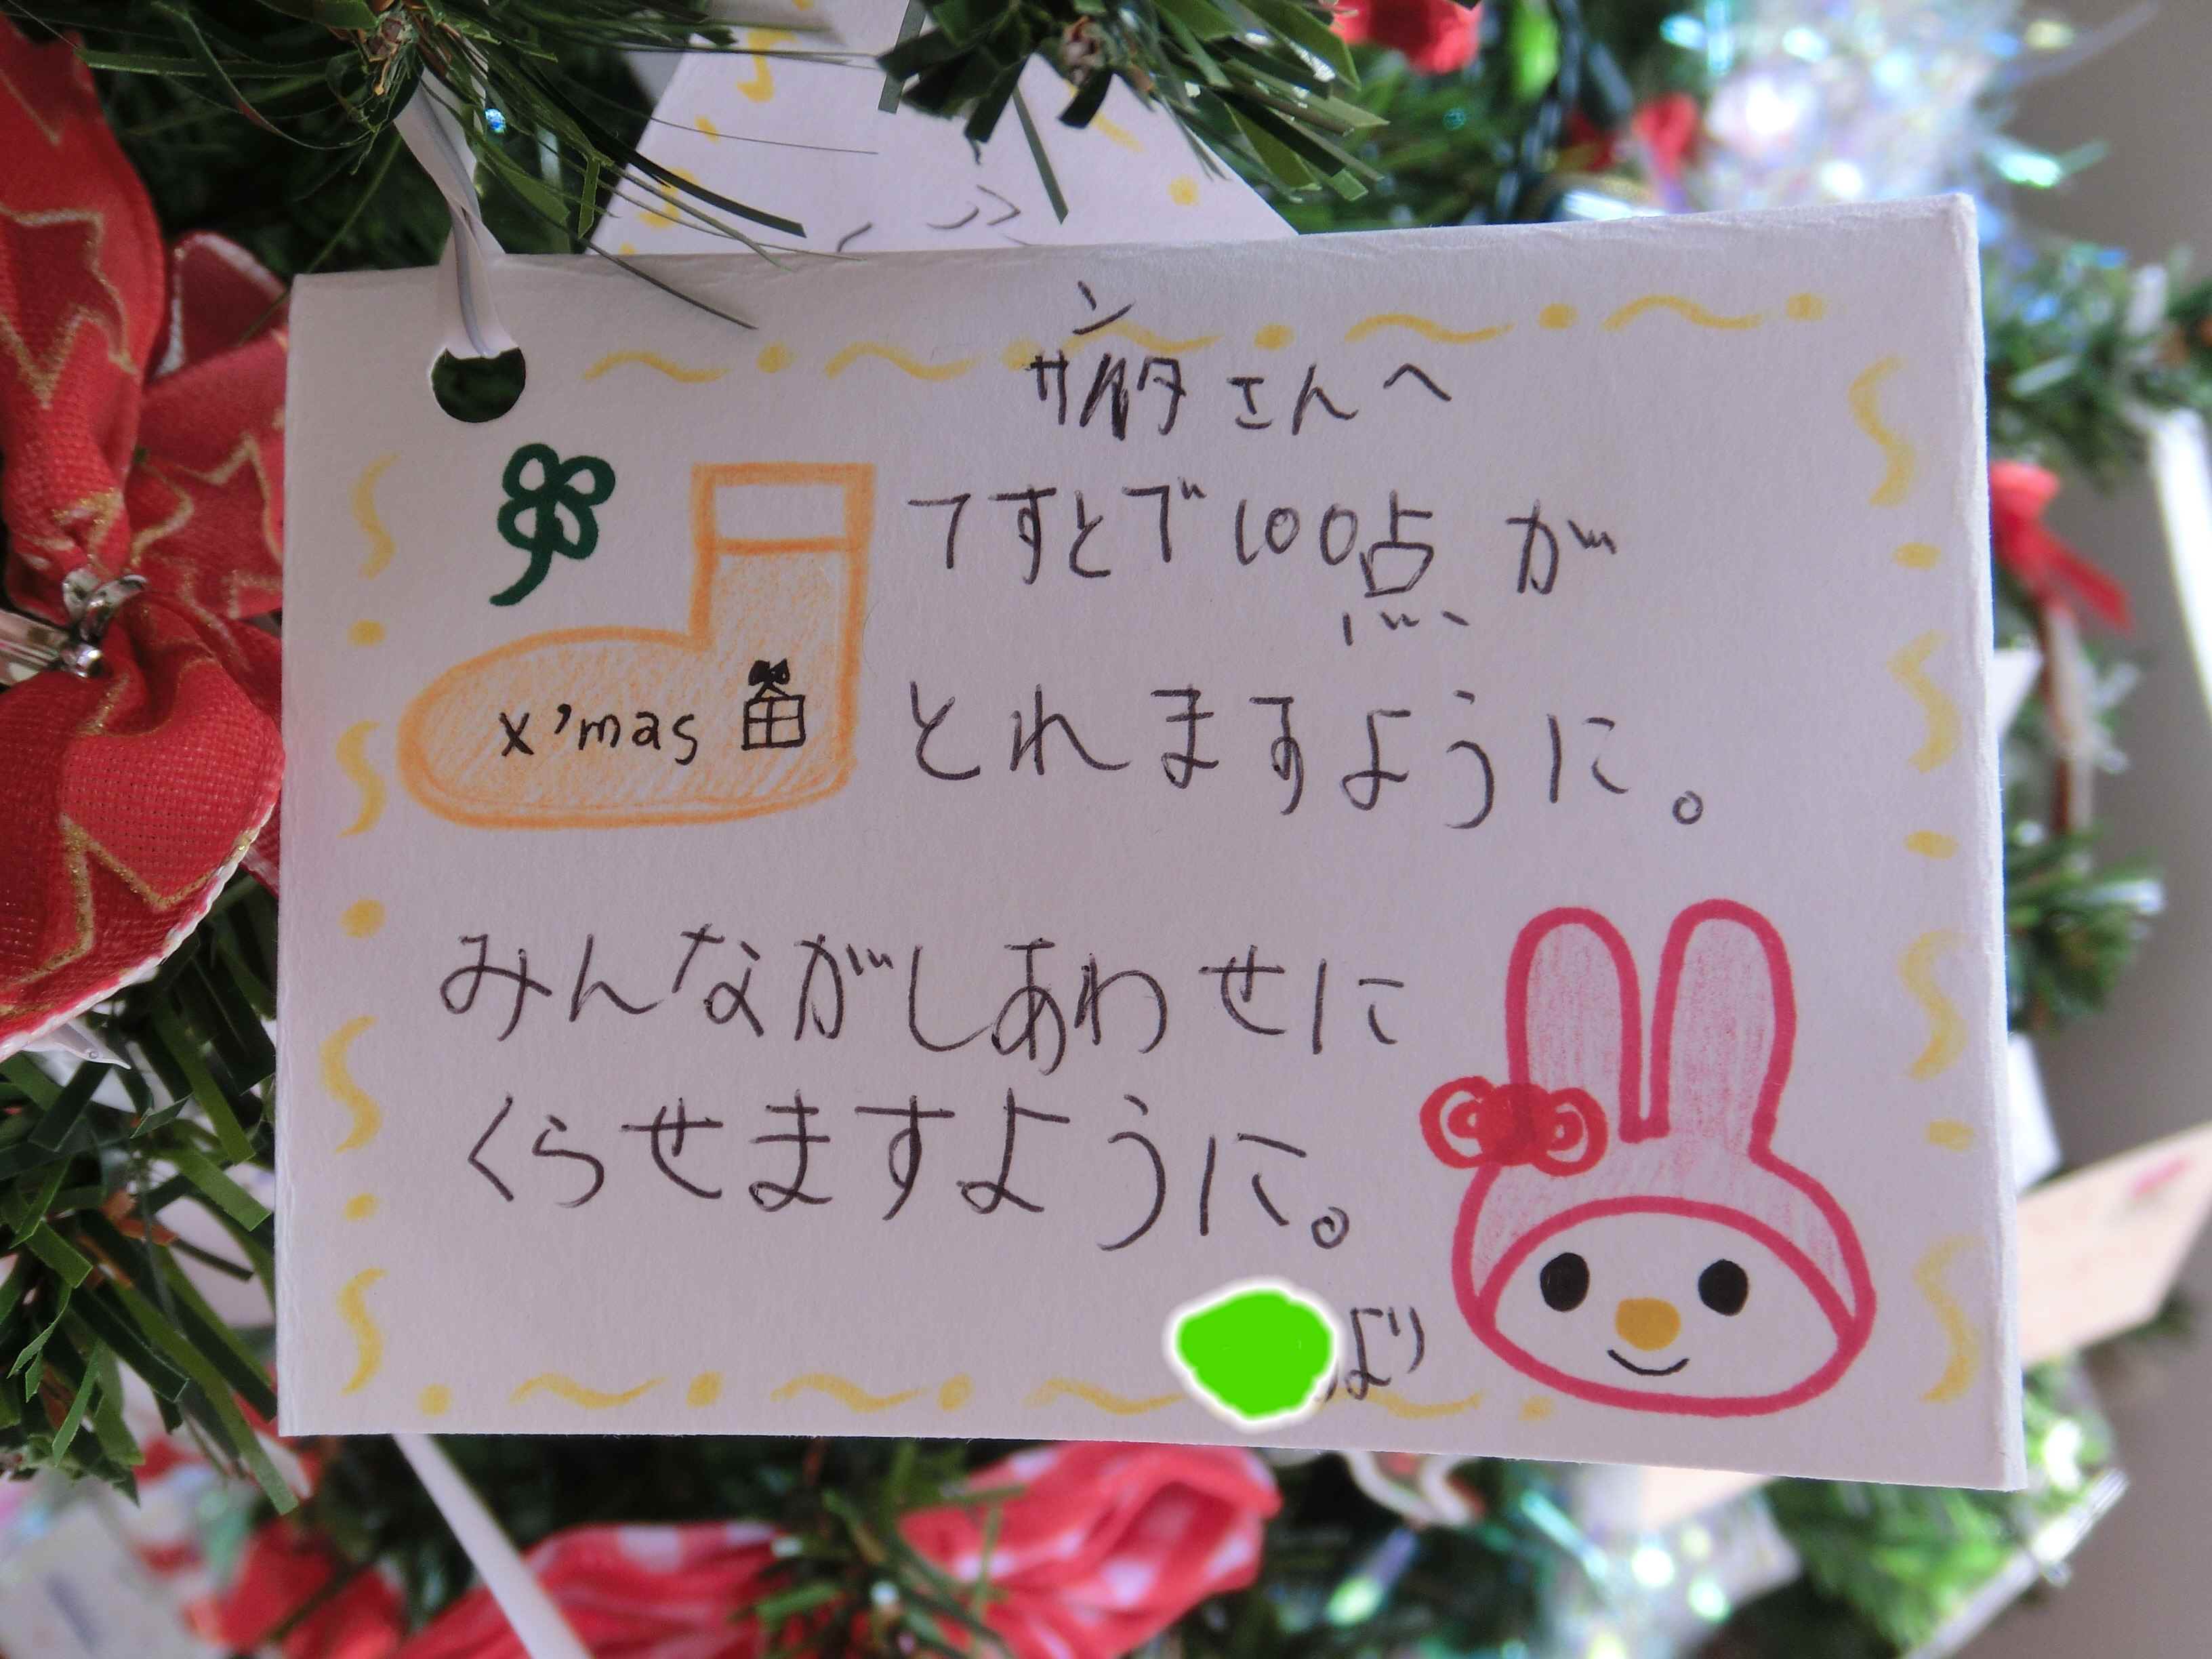 サンタさんへ
てすとで100点が
とれますように。
x'mas
みんながしあわせに
くらせますように。
より